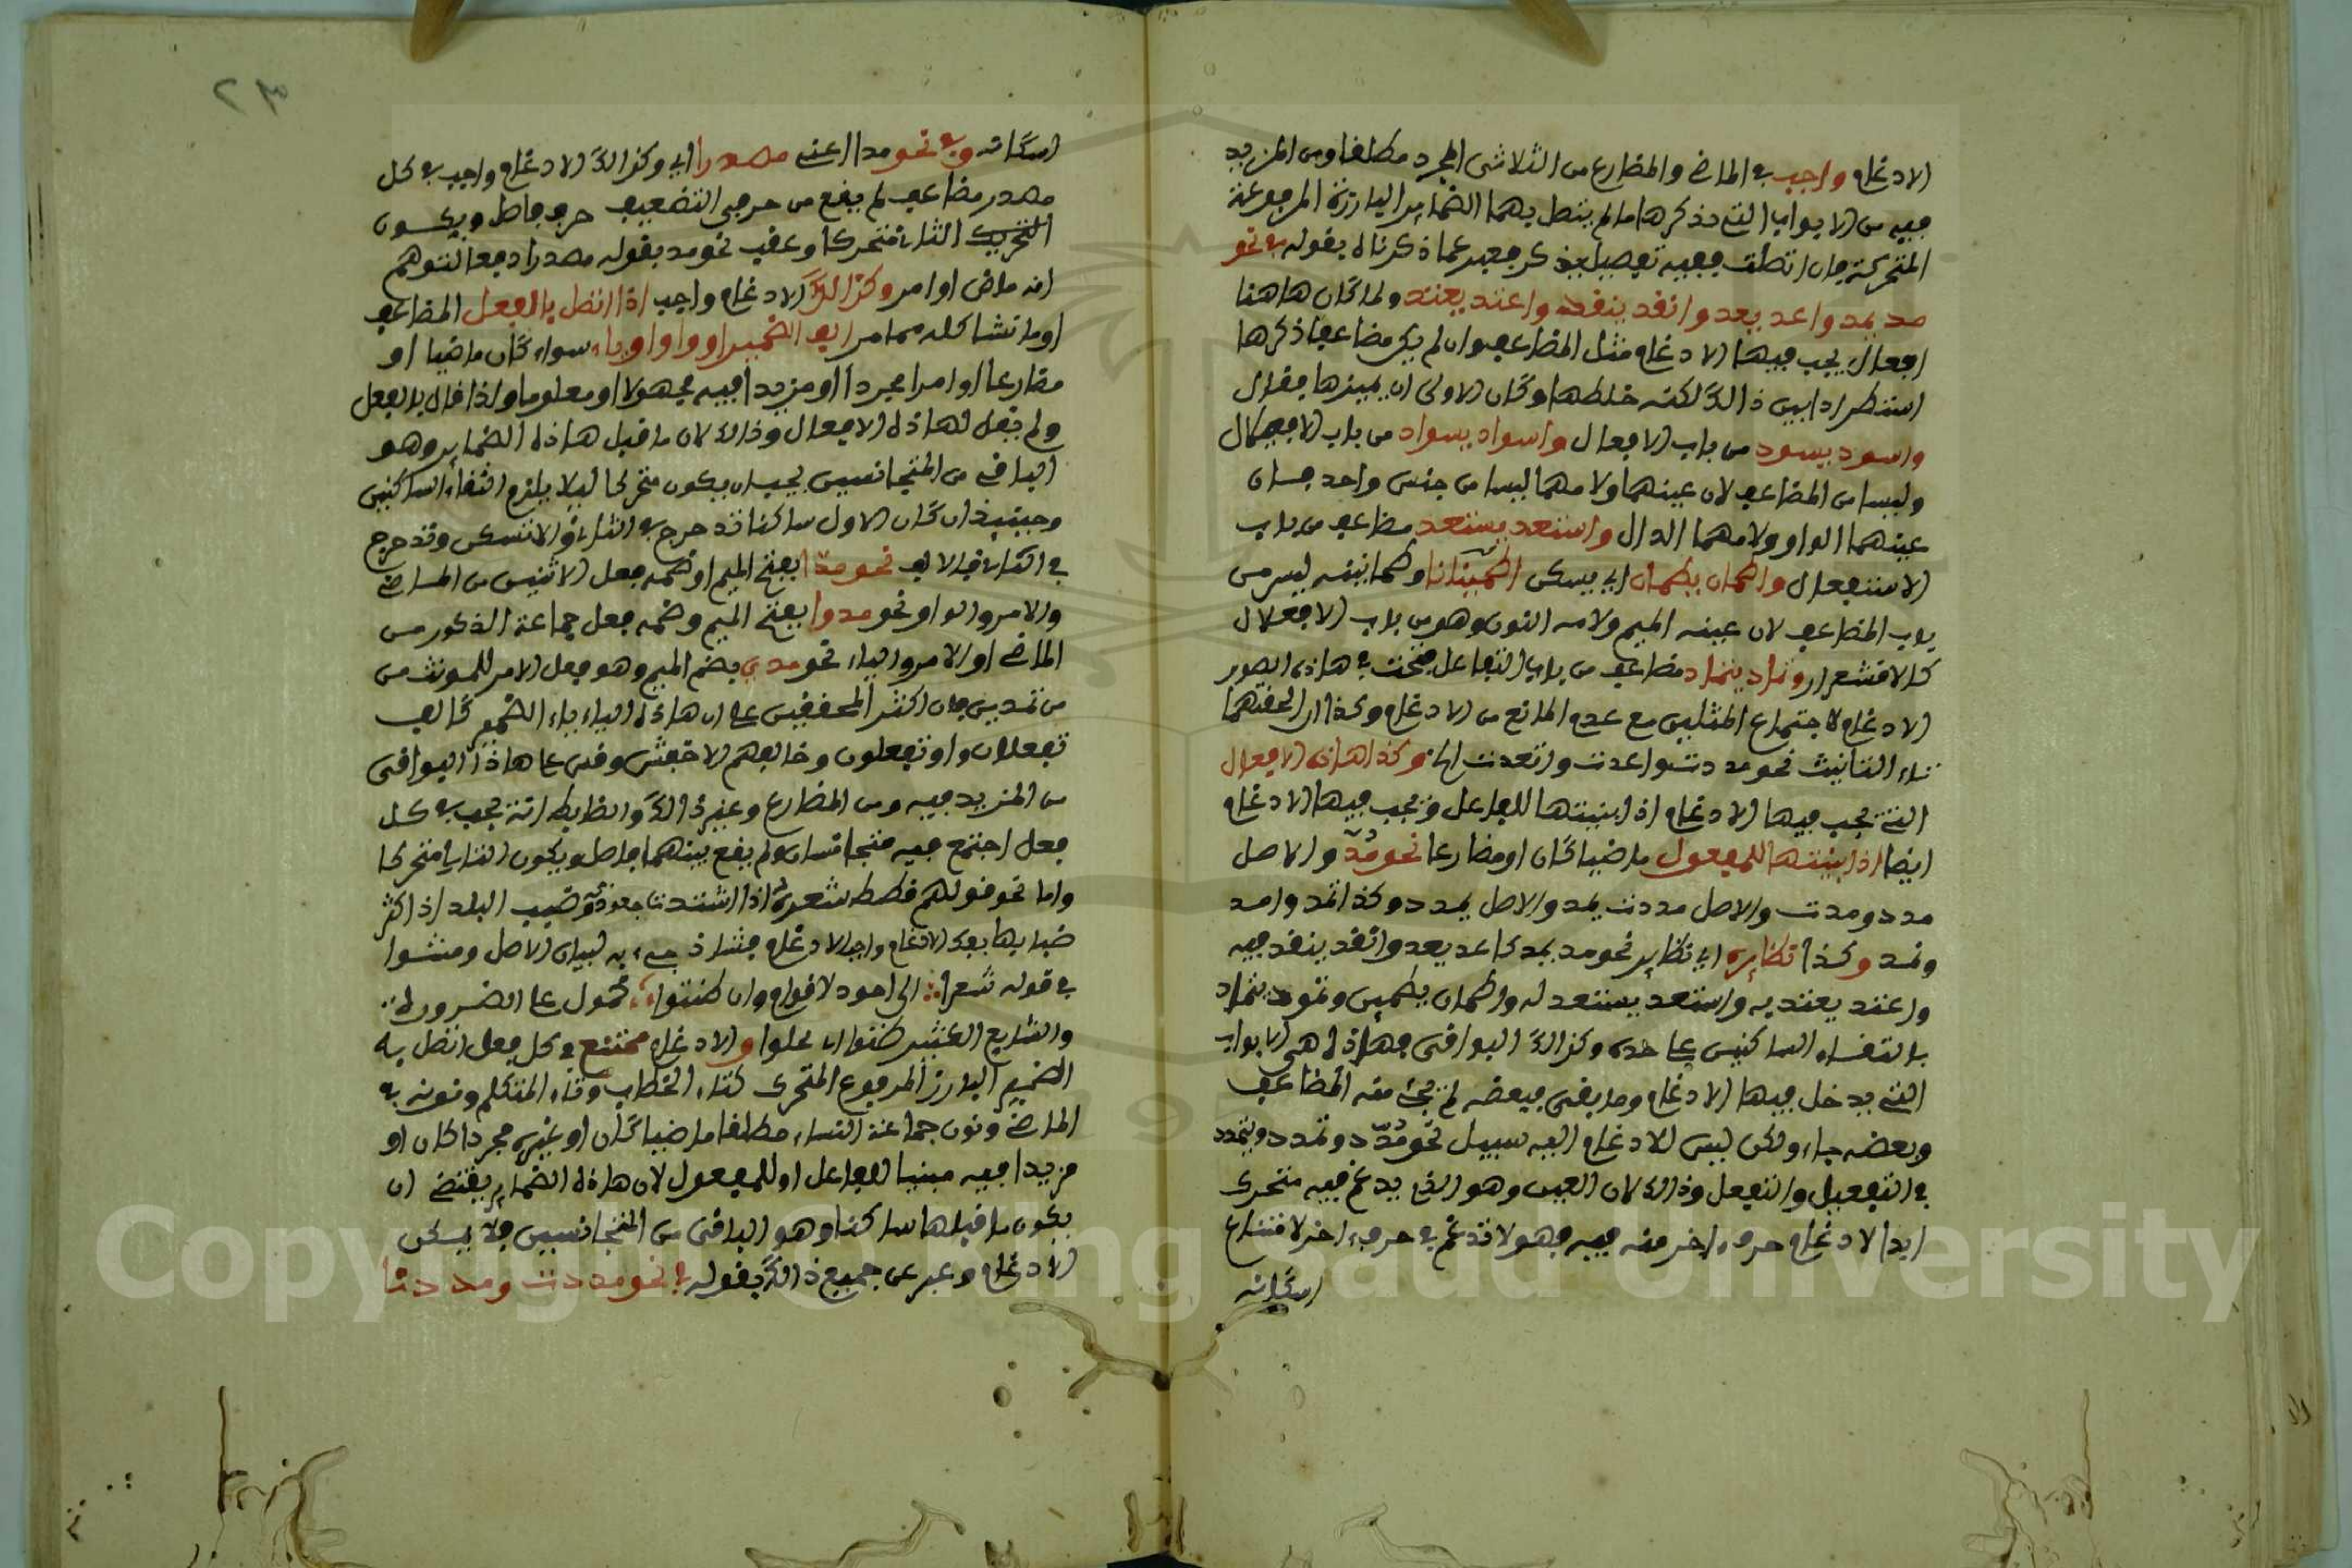 الادغام واجب في الماضي والمضارع من الثلاثي المجرد مطلقا ومن المزيد
فيه من الابواب التي نذكرها ما لم يتصل بهما الضماير البارزة المرفوعة
المتحركة فان اتصلت ففيه تفصيل يذكر فعبر عما ذكرناه بقوله في نحو
مد يمد واعد يعد وانقد ينقد واعتد يعتد ولما كان هاهنا
افعال يجب فيها الادغام مثل المضاعف وان لم يكن مضاعفا ذكرها
استطرادا بين ذالك لكنه خلطها وكان الاولى ان يميزها فقال
واسود يسود من باب الافعلال واسواد يسواد من باب الافعيلال
وليسا من المضاعف لان عينهما ولامهما ليسا من جنس واحد فان
عينهما الواو ولامهما الدال واستعد يستعد مضاعف من باب
الاستفعال واطمان يطمان اي يسكن اطمينانا وطمانينه ليس من
باب المضاعف لان عينه الميم ولامه النون وهو من باب الافعلال
كالاقشعرار وتماد يتماد مضاعف من باب التفاعل فتحت في هاذه الصور
الادغام لاجتماع المثلين مع عدم المانع من الادغام وكذا ان الحقتهما
تاء التانيث نحو مدت واعدت وانقدت الخ وكذا هاذه الافعال
التي يجب فيها الادغام اذا بنيتها للفاعل يجب فيها الادغام
ايضا اذا بنيتها للمفعول ماضيا كان او مضارعا نحو مُدّ والاصل
مدد ومدت والاصل مددت يمد والاصل يمدد وكذا تمد وامد
ونمد وكذا نظايره اي نظاير نحو مد يمد كاعد يعد وانقد ينقد فيه
واعتد يعتد به واستعد يستعد له واطمان يطمين وتمود يتماد
بالتقاء الساكنين على حده وكذالك البواقي فهاذه هي الابواب
التي يدخل فيها الادغام وما بقي فبعضه لم يجئ منه المضاعف
وبعضه جاء ولكن ليس للادغام اليه سبيل نحو مدّد وتمدد ويتمدد
في التفعيل والتفعل وذالك لان العين وهو الذي يدغم فيه متحرك
ابدا لادغام حرف اخر منه فيه فهو لا تدغم في حرف اخر لامتناع
اسكانه
٢٣
اسكانه وفي نحو مدا اعني مصدرا اي وكذالك الادغام واجب في كل
مصدر مضاعف لم يقع من حرفي التضعيف حرف فاصل ويكون
الثاني متحركا وعقب نحو مد بقوله مصدرا دفعا لتوهم
انه ماض او امر وكذالك الادغام واجب اذا اتصل بالفعل المضاعف
او ما شاكله مما مر الف الضمير او واو او ياء سواء كان ماضيا او
مضارعا او امرا مجردا او مزيدا فيه مجهولا او معلوما ولذا قال بالفعل
ولم يقل لهاذه الافعال وذالك لان ما قبل هاذه الضماير وهو
الباقي من المتجانسين يجب ان يكون متحركا ليلا يلزم التقاء الساكنين
وحينيذ ان كان الاول ساكنا تدرج في الثاني والا تسكن وتدرج
في الثاني فالالف نحو مدّا بفتح الميم او ضمه فعل الاثنين من الماضي
والامر والواو نحو مدوا بفتح الميم وضمه فعل جماعة الذكور من
الماضي او الامر والياء نحو مدي بضم الميم وهو فعل الامر للمونث من
من تمدين فان اكثر المحققين على ان هاذه الياء ياء الضمير كالف
تفعلان واو تفعلون وخالفهم الاخفش وقس على هاذا البواقي
من المزيد فيه ومن المضارع وغير ذالك والضابط انه يجب في كل
فعل اجتمع فيه متجانسان ولم يقع بينهما فاصل ويكون الثاني متحركا
واما نحو قولهم قطط شعره اذا اشتدت جعودته وضبب البلد اذا كثر
ضبابها بفك الادغام واجب الادغام فشاذ جيء به لبيان الاصل وضننوا
في قوله شعرا ∴ اني اجود لاقوام وان ضننوا ∴ محمول على الضرورة
والشايع الكثير ضنوا اي بخلوا والادغام ممتنع في كل فعل اتصل به
الضمير البارز المرفوع المتحرك كتاء الخطاب وتاء المتكلم ونونه في
الماضي ونون جماعة النساء مطلقا ماضيا كان او غيره مجردا كان او
مزيدا فيه مبنيا للفاعل او للمفعول لان هاذه الضماير يقتضي ان
يكون ما قبلها ساكنا وهو الباقي من المتجانسين فلا يمكن
الادغام وعبر عن جميع ذالك بقوله في نحو مددت ومددنا
Copyright © King Saud University